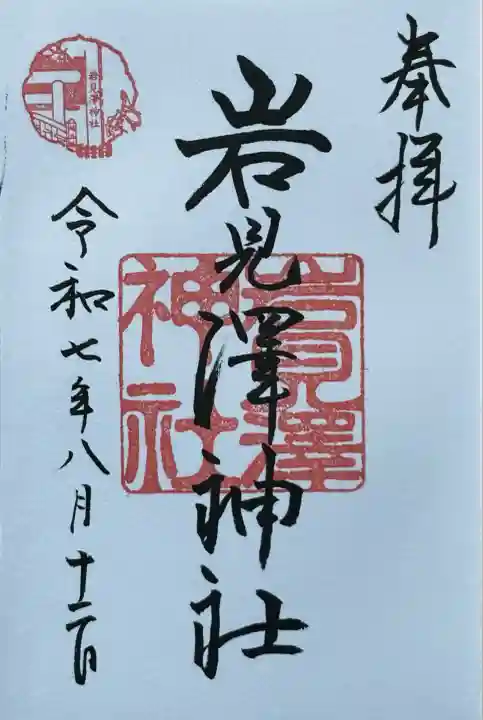 奉拝
岩見澤神社
岩見澤神社
令和七年八月十二日
岩見澤神社